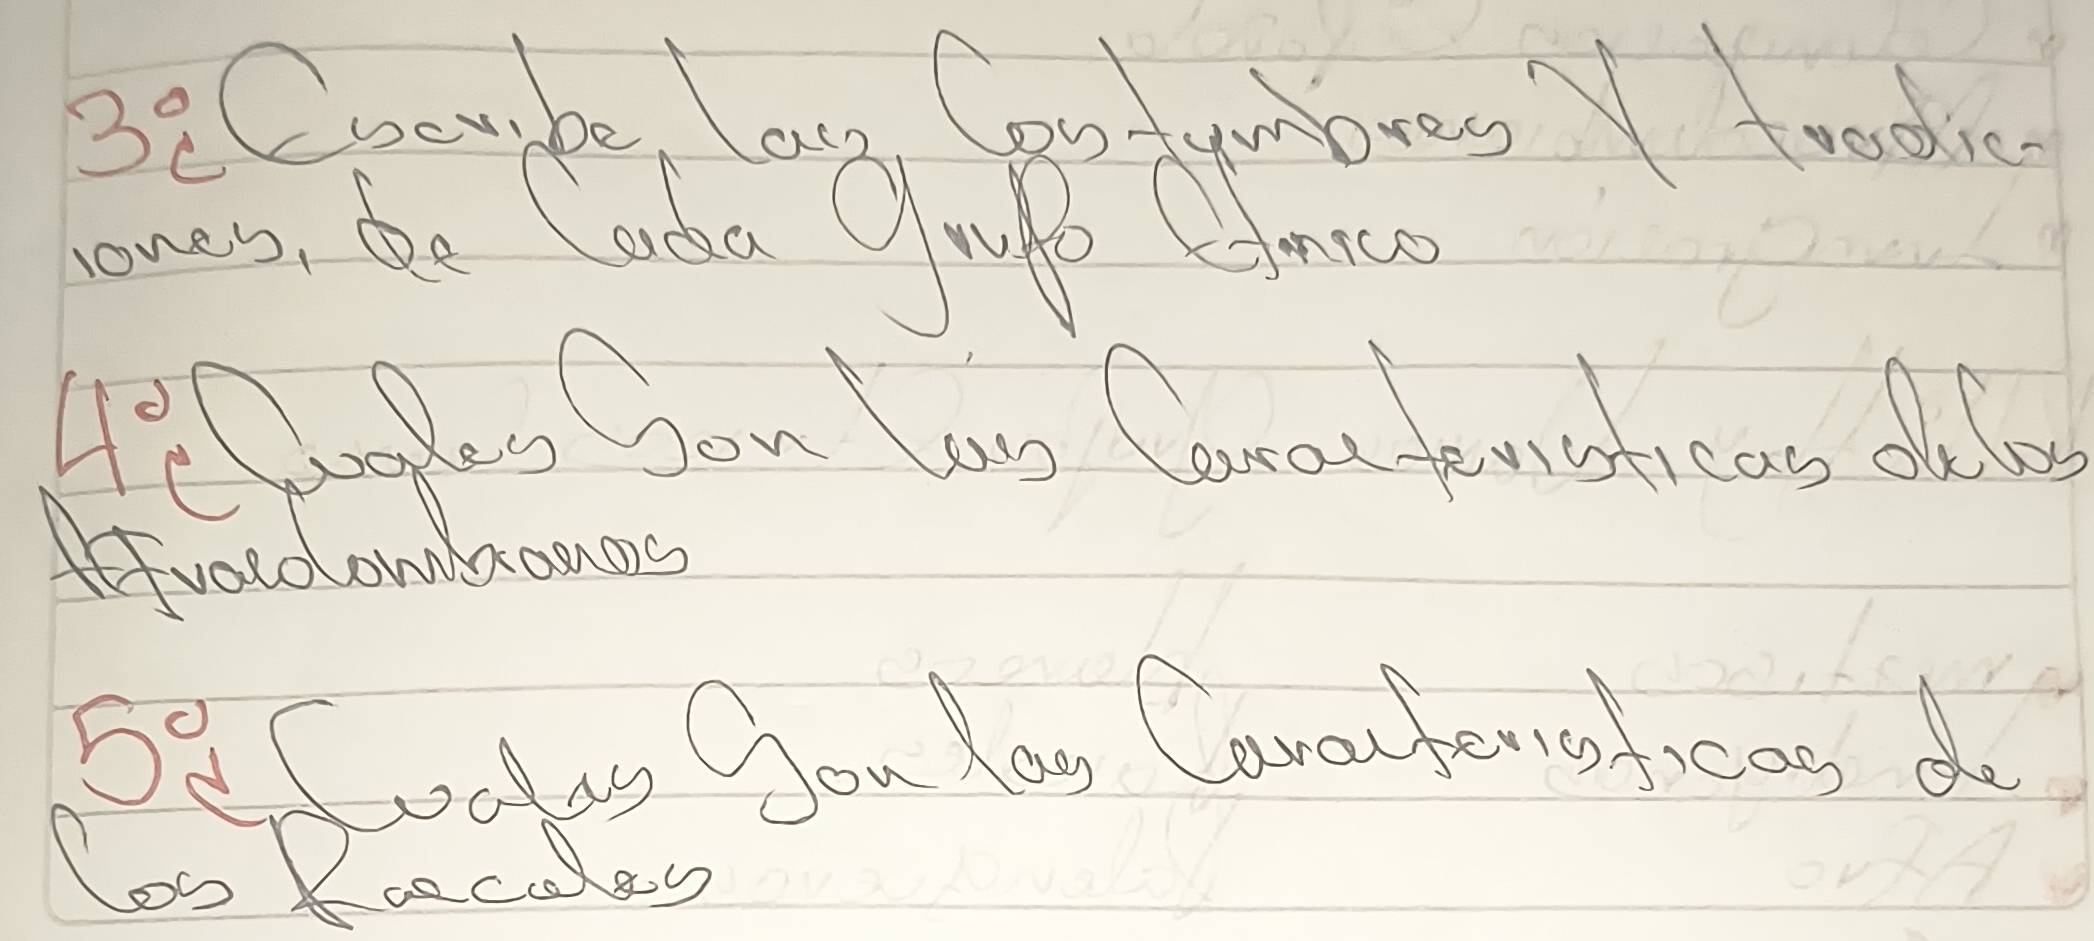 3° Escribe las Costumbres Y tradic-
iones, de Cada grupo Etnico
4° Cuales Son las Caracteristicas de los
Afrocolombianos
5° Cuales Son las Caracteristicas de
los Raizales